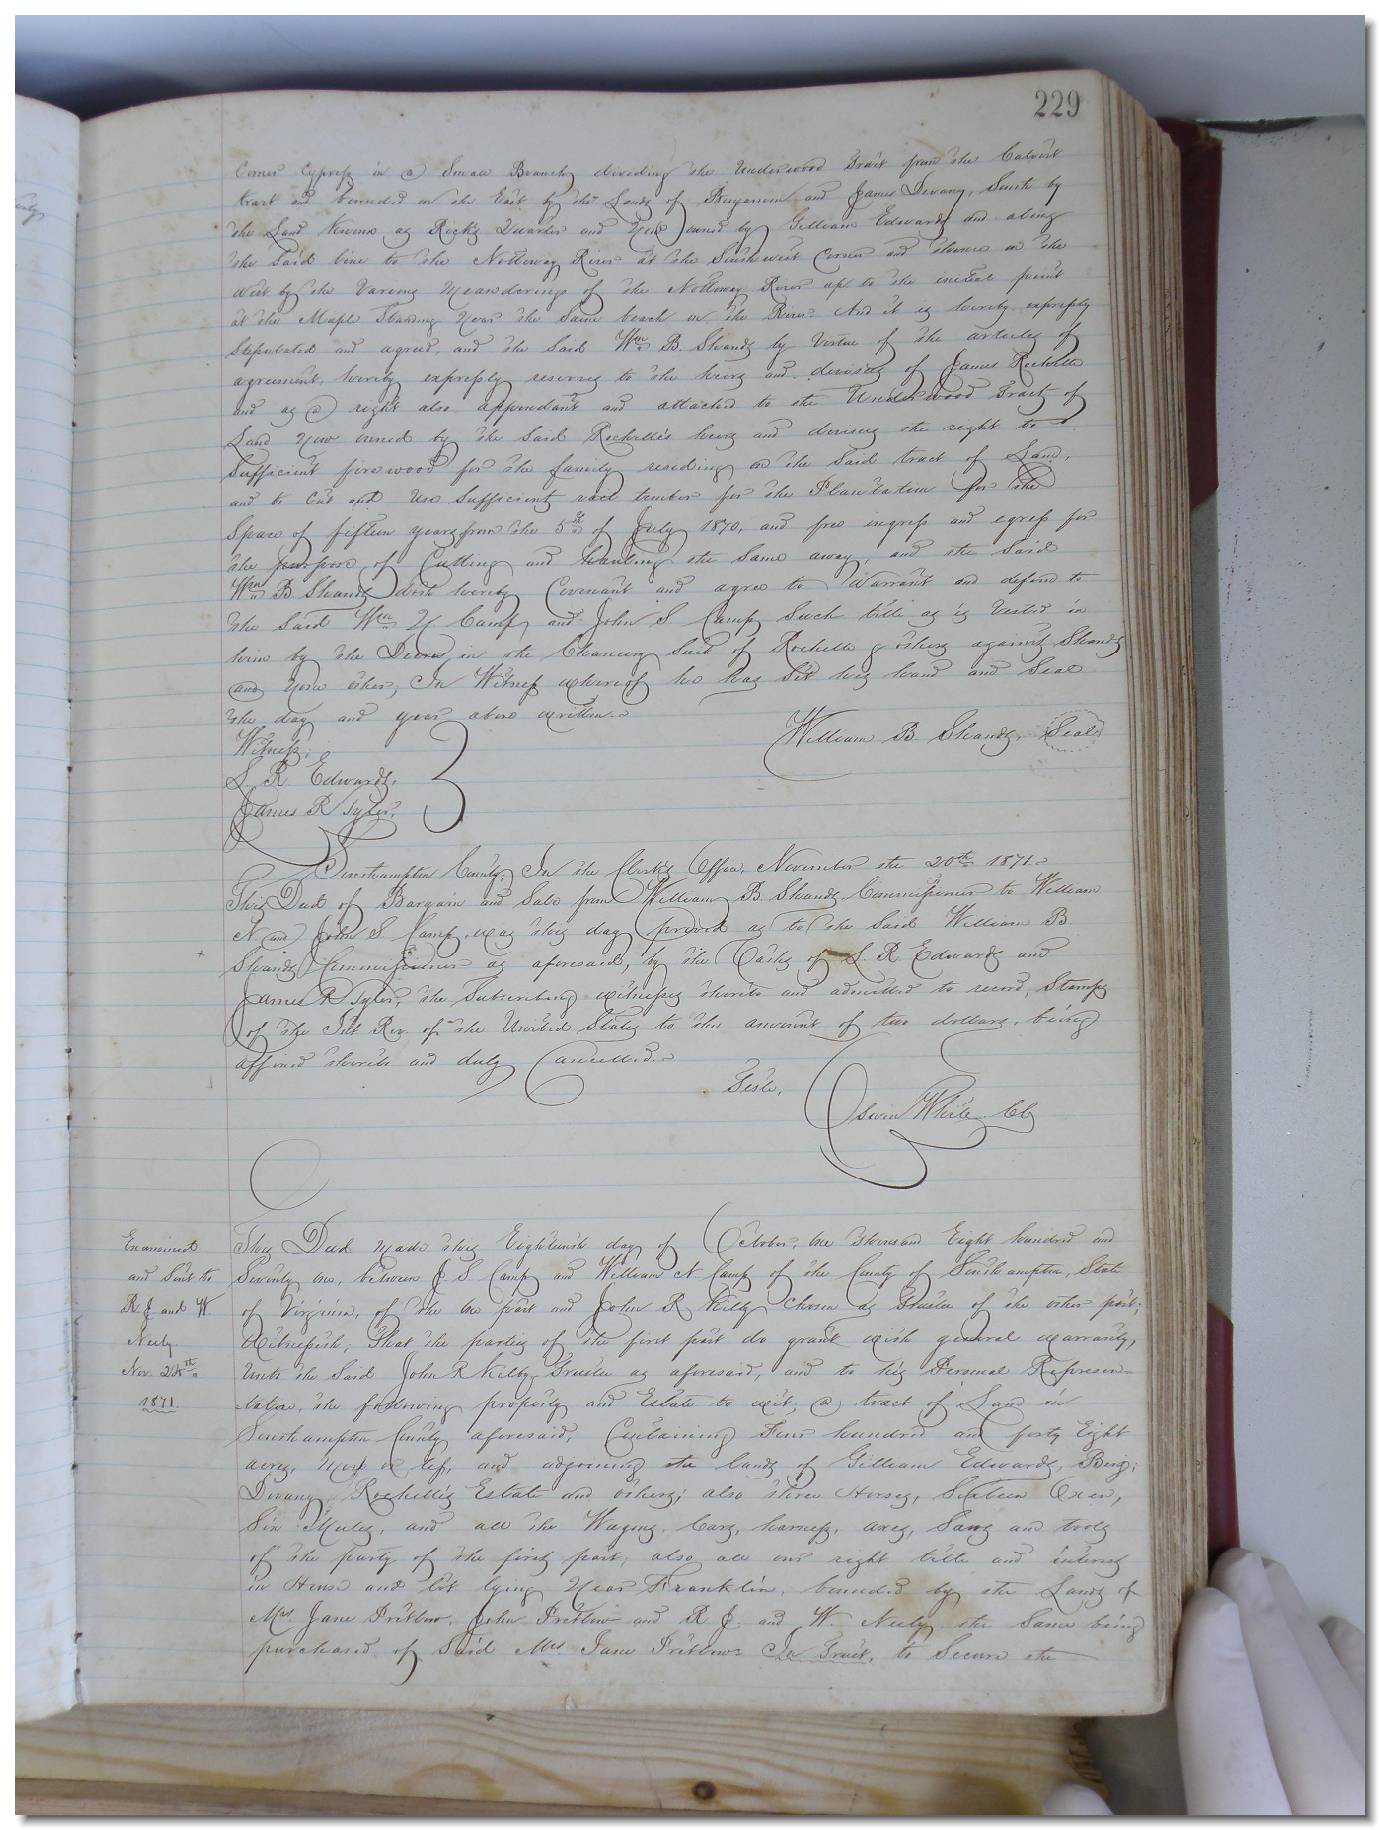 229
Corner Cypress in a Small Branch, dividing the Underwood Tract from the Calvert
tract and bounded on the East by the Lands of Benjamin and James Devany, South by
the Land Known as Ricks Quarter and now owned by Gilliam Edwards and along
the Said line to the Nottoway River at the South west Corner and thence on the
West by the Varying Meanderings of the Nottoway River up to the initial point
at the Maple Standing Near the Same beach on the River. And it is hereby expressly
Stipulated and agreed, and the Said Wm B. Shands by Virtue of the articles of
agreement, hereby expressly reserves to the heirs and devisees of James Rochelle
and as a right also appendant and attached to the Underwood Tract of
Land Now owned by the Said Rochelle's heirs and devisees the right to
Sufficient firewood for the family residing on the Said tract of Land,
and to Cut and Use Sufficient rail timber for the Plantation for the
Space of fifteen years from the 5th of July 1870, and free ingress and egress for
the purpose of Cutting and hauling the Same away, and the Said
Wm B. Shands doth hereby Covenant and agree to Warrant and defend to
the Said Wm N Camp and John S. Camp Such title as is Vested in
him by the Decree in the Chancery Suit of Rochelle & others against Shands
and others, In Witness whereof he has Set his hand and Seal
the day and year above written.
William B. Shands, Seal
Witness,
L. R. Edwards,
James R Tyler,
Southampton County, In the Clerk's Office, November the 20th 1871.
This Deed of Bargain and Sale from William B Shands Commissioner to William
N. and John S. Camp, was this day proved as to the Said William B.
Shands Commissioner as aforesaid, by the Oaths of L. R Edwards and
James R Tyler, the Subscribing witnesses thereto and admitted to record, Stamps
of the Int. Rev. of the United States to the amount of two dollars, being
affixed thereto and duly Cancelled.
Teste,
Edwin White Clk
Examined
and Sent to
R J. and W.
Neely.
Nov. 24th
1871.
This Deed made this Eighteenth day of October, One thousand Eight hundred and
Seventy One, between J S Camp and William N Camp of the County of Southampton, State
of Virginia, of the One part and John R Kilby Chosen as Trustee of the other part,
Witnesseth, That the parties of the first part do grant with general warranty,
Unto the Said John R Kilby Trustee as aforesaid, and to his Personal Represen=
=tative, the following property and Estate to wit; a tract of Land in
Southampton County aforesaid, Containing Four hundred and forty Eight
acres, More or less, and adjoining the lands of Gilliam Edwards, Benj:
Devany, Rochelle's Estate and others; also three Horses, Sixteen Oxen,
Six Mules, and all the Wagons, Cars, harness, axes, Saws and tools
of the party of the first part, also all our right title and interest
in House and lot lying Near Franklin, bounded by the Lands of
Mrs. Jane Pretlow, John Pretlow and R. J. and W. Neely the Same being
purchased of Said Mrs. Jane Pretlow In Trust, to Secure the